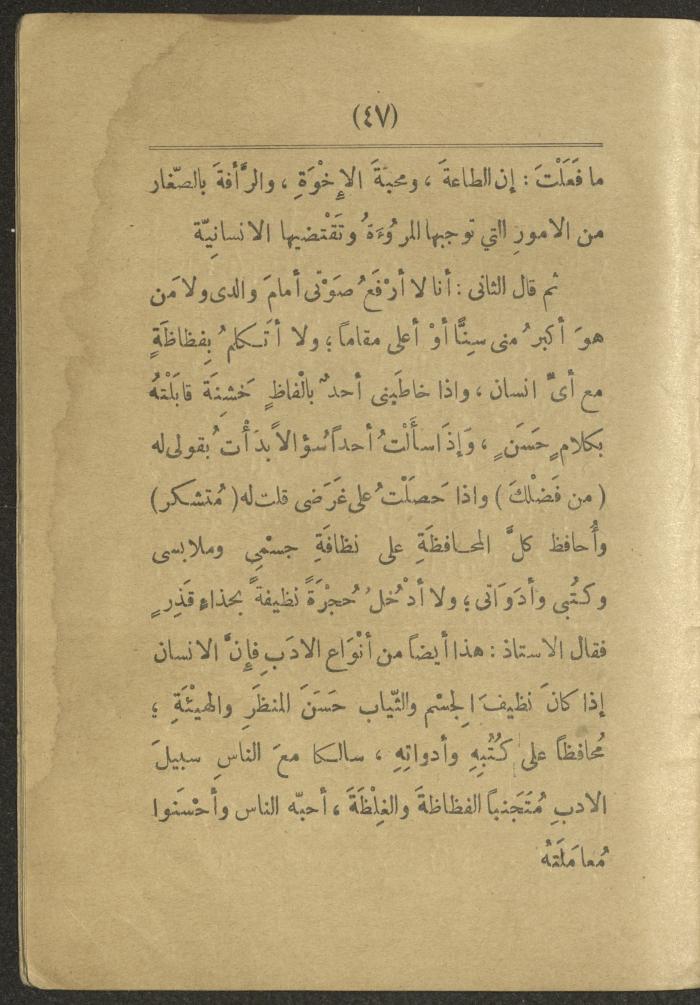 (٤٧)
ما فَعَلْتَ : إن الطاعةَ ، ومحبّةَ الإِخْوَةِ ، والرَّأفةَ بالصّغار
من الامورِ التي توجبها المرُوءَةُ وتَقْتضيها الانسانيّة
ثم قال الثانى : أنا لا أرْفَعُ صَوْتى أمامَ والدى ولا مَن
هوَ أكبرُ منى سِنًّا أوْ أعلى مقاماً ؛ ولا أتَكلمُ بِفظاظَةٍ
مع أىِّ انسان ، واذا خاطبَنى أحدٌ بالْفاظٍ خَشِنَة قابَلْتهُ
بكلامٍ حَسَنٍ ، وَإِذَا سأَلْتُ أحداً سُؤالاً بدَأْتُ بقولى له
( من فَضْلكَ ) واذا حَصَلْتُ على غَرَضى قلت له ( مُتشكر )
وأُحافظ كلَّ المحـافظَةِ على نظافَةِ جسْمِى وملابسى
وكتُبى وأدَوَاتى ؛ ولا أدْخلُ حُجرَةً نظيفةً بحذاءٍ قَذِرٍ
فقال الاستاذ : هذا أيضاً من أنْوَاع الادَبِ فإِنَّ الانسان
إذا كانَ نظيفَ الجسْم والثّياب حَسَنَ المنظَرِ والهيْئَةِ ؛
مُحافظاً على كُتُبِهِ وأدواتِهِ ، سالكا معَ الناسِ سبيلَ
الادبِ مُتَجَنباً الفظاظةَ والغِلْظَةَ ، أحبّه الناس وأحْسَنوا
مُعامَلَتهُ